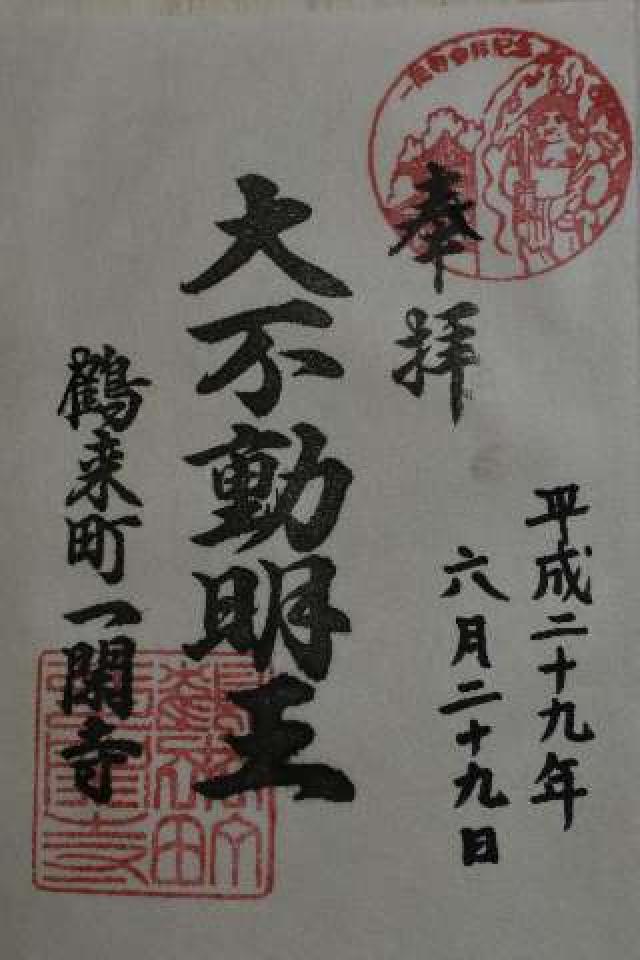 奉拝
平成二十九年
六月二十九日
大不動明王
鶴来町一閑寺